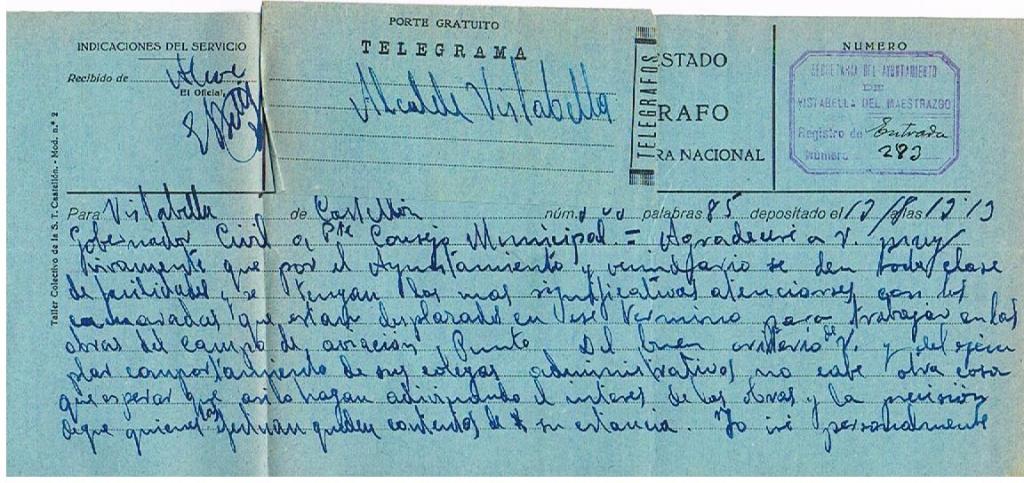 PORTE GRATUITO
TELEGRAMA
INDICACIONES DEL SERVICIO
Recibido de
El Oficial,
Alcalde Vistabella
TELEGRAFOS
ESTADO
RAFO
RA NACIONAL
NUMERO
SECRETARIA DEL AYUNTAMIENTO
DE
VISTABELLA DEL MAESTRAZGO
Registro de Entrada
Número 283
Taller Colectivo de la S. T. Castellón. - Mod. n.º 2
Para Vistabella de Castellón núm. palabras 85 depositado el 12/8 a las 12'13
Gobernador Civil a Pte Consejo Municipal = Agradeceré a V. muy
vivamente que por el Ayuntamiento y vecindario se den toda clase
de facilidades y se tengan las mas significativas atenciones con los
camaradas que estan desplazados en ese termino para trabajar en las
obras del campo de aviacion, Punto Del buen criterio de V. y del ejem
plar comportamiento de sus colegas administrativos no cabe otra cosa
que esperar que asi lo hagan el interes de las obras y la precisión
de que quienes las queden contentos de su estancia. Yo iré personalmente